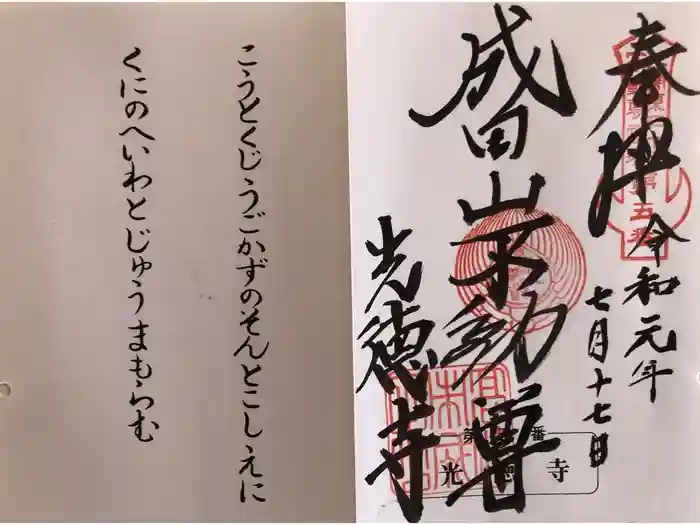 奉拝
令和元年
七月十七日
成田山不動尊
光徳寺
第 番
光徳寺
こうとくじうごかずのそんとこしえに
くにのへいわとじゅうまもらむ